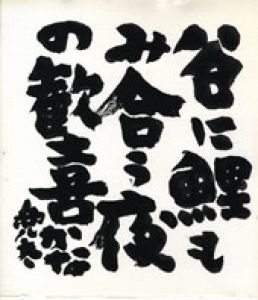 谷に鯉も
み合う夜
の歓喜かな
兜太